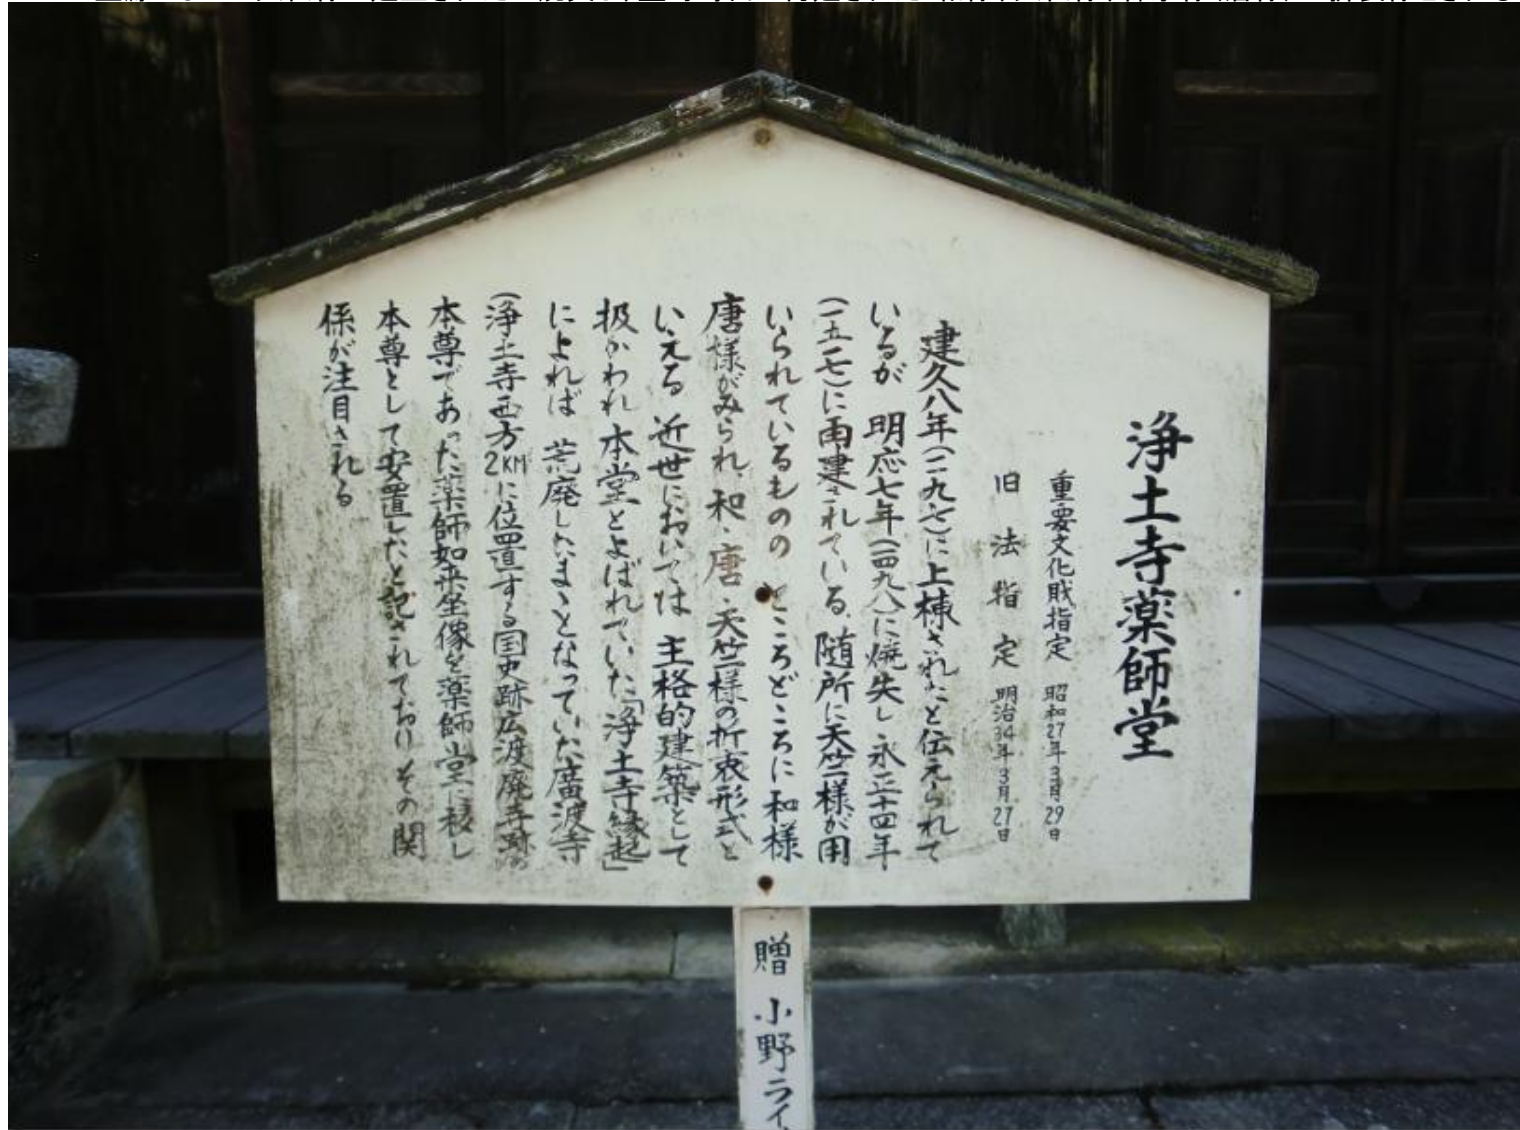 浄土寺薬師堂
重要文化財指定 昭和27年3月29日
旧法指定 明治34年3月27日
建久八年(一一九七)に上棟されたと伝えられて
いるが 明応七年(一四九八)に焼失し 永正十四年
(一五一七)に再建されている。随所に天竺様が用
いられているものの ところどころに和様
唐様がみられ、和・唐・天竺様の折衷形式と
いえる 近世においては 主格的建築として
扱かわれ 本堂とよばれていた「浄土寺縁起」
によれば 荒廃したまゝとなっていた廣渡寺
(浄土寺西方2KMに位置する国史跡広渡廃寺跡)の
本尊であった薬師如来坐像を薬師堂に移し
本尊として安置したと記されており その関
係が注目される
贈 小野ライ